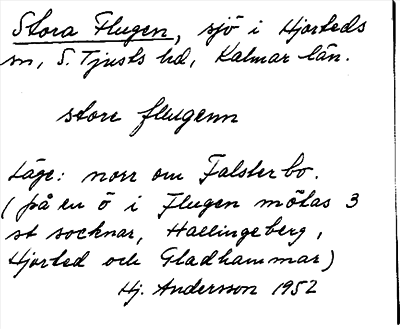 Stora Flugen, sjö i Hjorteds
sn, S. Tjusts hd, Kalmar län.
store flugenn
Läge: norr om Falsterbo.
(på en ö i Flugen mötas 3
st socknar, Hallingeberg,
Hjorted och Gladhammar)
Hj. Andersson 1952